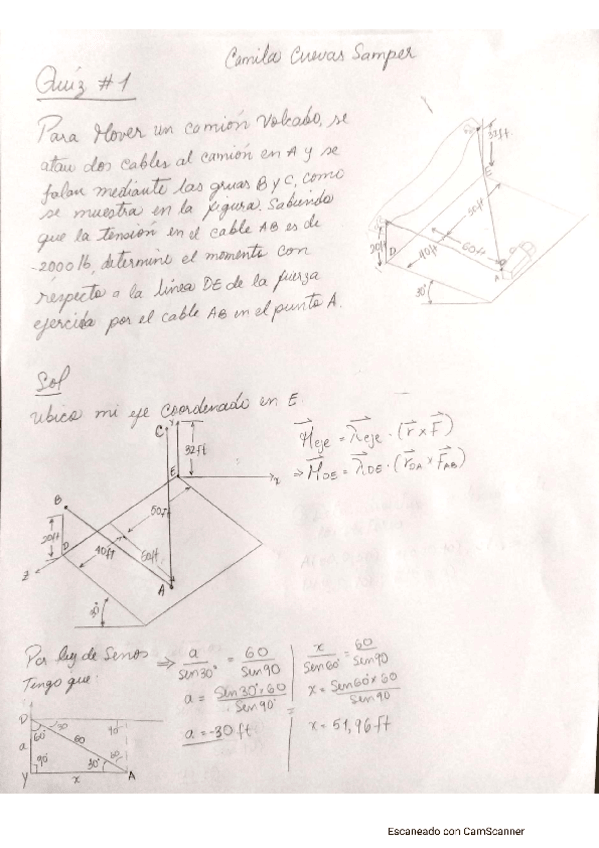 Camila Cuevas Samper
Quiz #1
Para Mover un camión Volcado, se
atan dos cables al camión en A y se
jalan mediante las gruas B y C, como
se muestra en la figura. Sabiendo
que la tensión en el cable AB es de
2000 lb, determine el momento con
respecto a la línea DE de la fuerza
ejercida por el cable AB en el punto A.
32ft
E
50ft
20ft
D
40ft
60ft
A
30°
Sol
Ubico mi eje coordenado en E
M eje = λ eje · (r × F)
⇒ M DE = λ DE · (r DA × F AB)
C
32ft
E
x
B
50ft
20ft
D
40ft
60ft
z
A
30°
Por ley de Senos
Tengo que:
⇒ a/sen30° = 60/sen90
a = Sen30°×60/Sen90°
a = -30 ft
x/Sen60° = 60/Sen90
x = Sen60×60/Sen90
x = 51,96 ft
D
30
90
60°
a
60
60
90
30°
Y
x
A
Escaneado con CamScanner